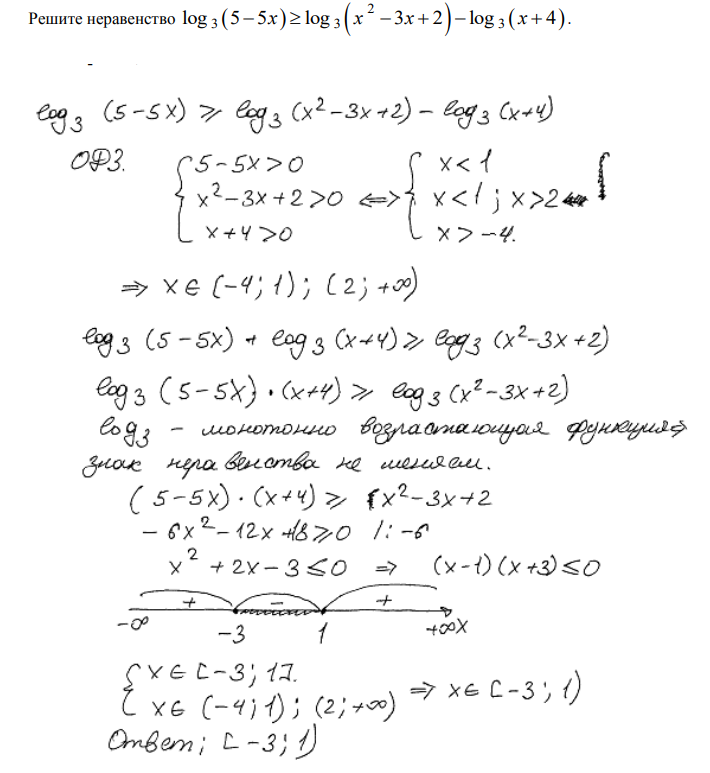 Решите неравенство log₃(5−5x)≥log₃(x²−3x+2)−log₃(x+4).
-
log₃ (5−5x) ≥ log₃ (x²−3x+2) − log₃ (x+4)
ОДЗ. { 5−5x>0 { x<1
x²−3x+2>0 <=> x<1 ; x>2
x+4>0 x>−4.
=> x∈ (−4; 1) ; (2; +∞)
log₃ (5−5x) + log₃ (x+4) ≥ log₃ (x²−3x+2)
log₃ (5−5x)·(x+4) ≥ log₃ (x²−3x+2)
log₃ – монотонно возрастающая функция =>
знак неравенства не меняем.
(5−5x)·(x+4) ≥ x²−3x+2
−6x²−12x+18≥0 /:−6
x²+2x−3≤0 => (x−1)(x+3)≤0
+ − +
−∞ −3 1 +∞ x
{ x∈ [−3; 1].
x∈ (−4; 1) ; (2; +∞) => x∈ [−3; 1)
Ответ; [−3; 1)